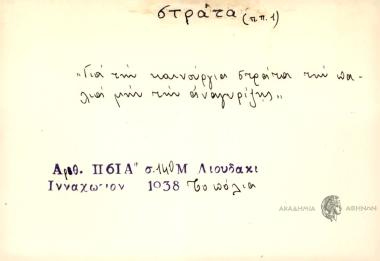 στράτα (π π. 1)
„Γιά τήν καινούργια στράτα τήν πα-
λιά μήν τήν ἀναγυρίζῃς„
Αριθ. ΠΘΙΑ σ. 140 Μ Λιουδακι
Ινναχωριον 1938 Τοπόλια
ΑΚΑΔΗΜΙΑ ΑΘΗΝΩΝ